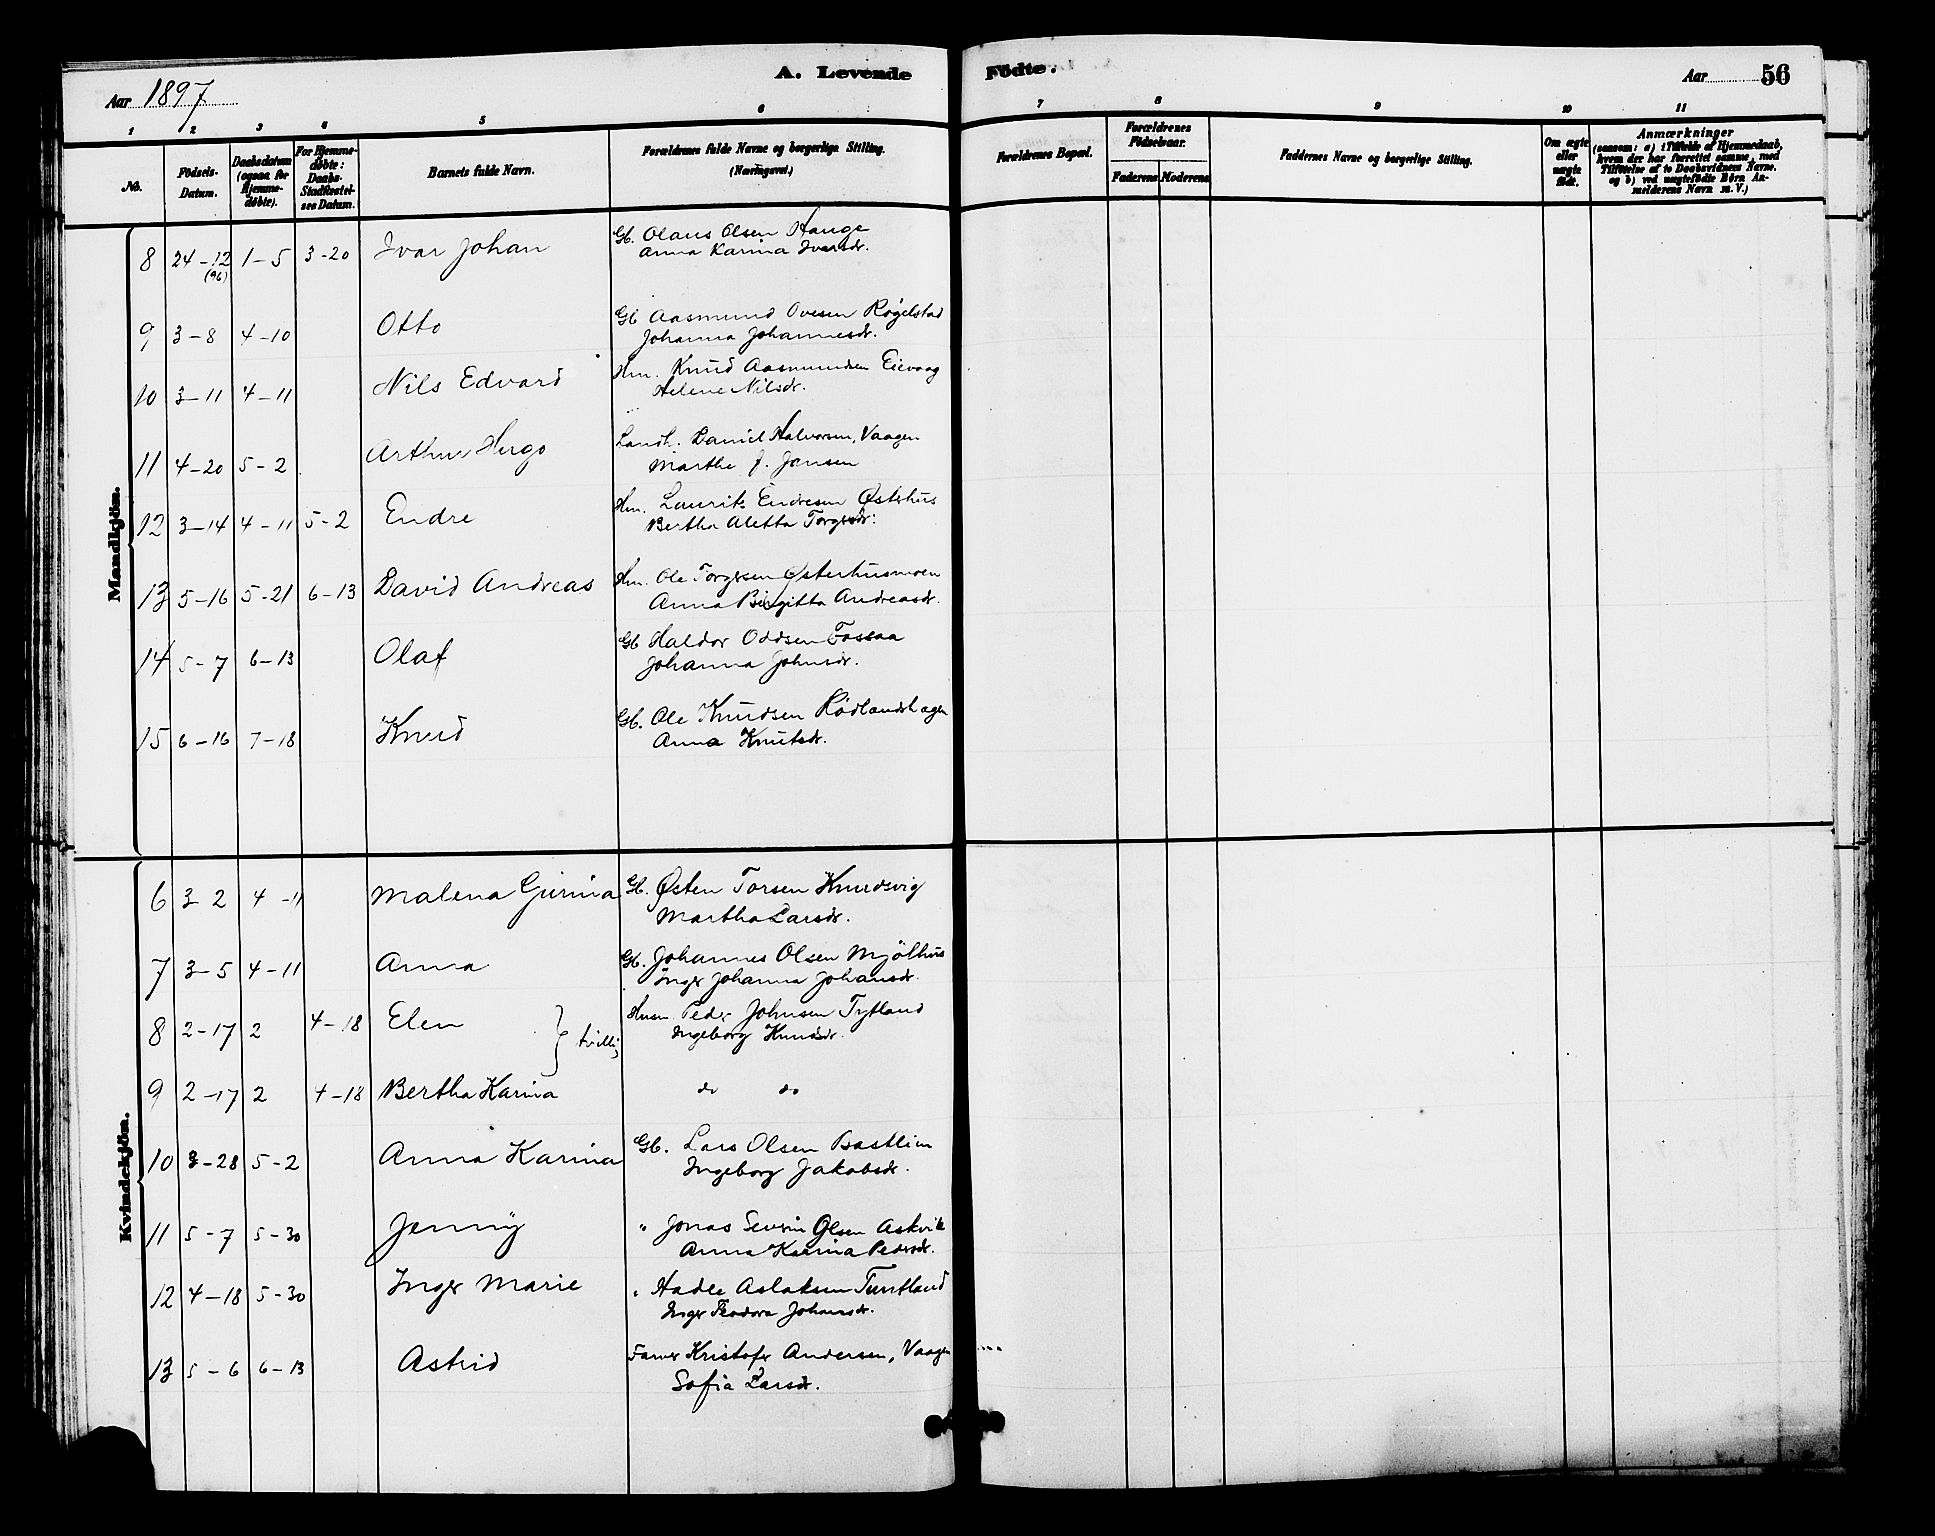 Aar 1897
A. Levende
Födte.
Aar 56
1 2 3 4 5 6 7 8 9 10 11
No.
Födsels-Datum.
Daabsdatum (ogsaa for Hjemme-døbte).
For Hjemme-døbte: Daabs-Stadfæstel-ses Datum.
Barnets fulde Navn.
Forældrenes fulde Navne og borgerlige Stilling. (Næringsvei.)
Forældrenes Bopæl.
Forældrenes Födselsaar.
Faderens Moderens
Faddernes Navne og borgerlige Stilling.
Om ægte eller uægte født.
Anmærkninger
(saasom: a) i Tilfælde af Hjemmedaab, hvem der har forrettet samme, med Tilføielse af to Daabsvidners Navne. og b) ved uægtefødte Børn An-melderens Navn m. V.)
Mandkjön.
8 24-12 (96) 1-5 3-20 Ivar Johan Gb. Olaus Olsen Hauge
Anna Karina Ivarsdr.
9 3-8 4-10 Otto Gb Aasmund Ovesen Røgelstad
Johanna Johannesdr.
10 3-11 4-11 Nils Edvard Hm. Knud Aasmundsen Eievaag
Helene Nilsdr.
11 4-20 5-2 Arthur Hugo Landh. Daniel Halvorsen, Vaagen
Marthe J. Jansen
12 3-14 4-11 5-2 Endre Hm. Laurits Endresen Østerhus
Bertha Aletta Torgersdr.
13 5-16 5-21 6-13 David Andreas Hm. Ole Torgersen Østerhusmoen
Anna Birgitta Andreasdr.
14 5-7 6-13 Olaf Gb Haldor Oddsen Fossaa
Johanna Johnsdr.
15 6-16 7-18 Knud Gb. Ole Knudsen Rödlandshagen
Anna Knutsdr.
Kvindekjön.
6 3-2 4-11 Malena Gurina Gb. Østen Torsen Knudsvig
Martha Larsdr.
7 3-5 4-11 Anna Gb. Johannes Olsen Mjölhus
Inger Johanna Johansdr.
8 2-17 2 4-18 Elen } tvilli Husm. Peder Johnsen Tytland
Ingeborg Knudsdr.
9 2-17 2 4-18 Bertha Karina do do
10 3-28 5-2 Anna Karina Gb. Lars Olsen Bastlien
Ingeborg Jakobsdr.
11 5-7 5-30 Jenny " Jonas Severin Olsen Askvik
Anna Karina Pedersdr.
12 4-18 5-30 Inger Marie " Hadle Aslaksen Tuntland
Inger Teodora Johansdr.
13 5-6 6-13 Astrid Farver Kristofer Andersen, Vaagen
Sofia Larsdr.